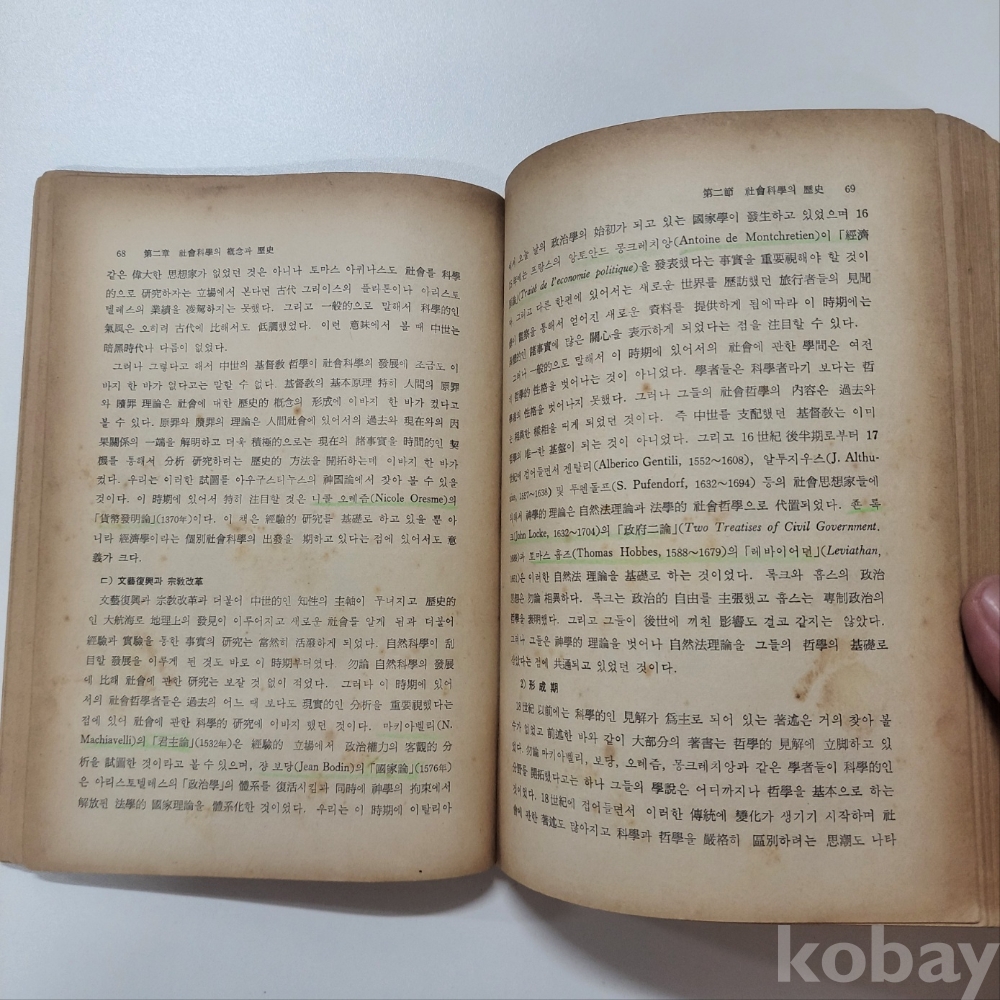 68 第二章 社會科學의 概念과 歷史
같은 偉大한 思想家가 없었던 것은 아니나 토마스 아퀴나스도 社會를 科學
的으로 硏究하자는 立場에서 본다면 古代 그리이스의 플리톤이나 아리스토
텔레스의 業績을 凌駕하지는 못했다. 그리고 一般的으로 말해서 科學的인
氣風은 오히려 古代에 比해서도 低調했었다. 이런 意味에서 볼 때 中世는
暗黑時代나 다름이 없었다.
그러나 그렇다고 해서 中世의 基督敎 哲學이 社會科學의 發展에 조금도 이
바지 한 바가 없다고는 말할 수 없다. 基督敎의 基本原理 特히 人間의 原罪
와 贖罪 理論은 社會에 대한 歷史的 概念의 形成에 이바지 한 바가 컸다고
볼 수 있다. 原罪와 贖罪의 理論은 人間社會에 있어서의 過去와 現在와의 因
果關係의 一端을 解明하고 더욱 積極的으로는 現在의 諸事實을 時間的인 契
機를 통해서 分析 硏究하려는 歷史的 方法을 開拓하는데 이바지 한 바가
컸다. 우리는 이러한 試圖를 아우구스티누스의 神國論에서 찾아 볼 수 있을
것이다. 이 時期에 있어서 特히 注目할 것은 니콜 오레슴(Nicole Oresme)의
「貨幣發明論」(1370年)이다. 이 책은 經驗的 硏究를 基礎로 하고 있을 뿐 아
니라 經濟學이라는 個別社會科學의 出發을 期하고 있다는 점에 있어서도 意
義가 크다.
ㄷ) 文藝復興과 宗敎改革
文藝復興과 宗敎改革과 더불어 中世的인 知性의 主軸이 무너지고 歷史的
인 大航海로 地理上의 發見이 이루어지고 새로운 社會를 알게 됨과 더불어
經驗과 實驗을 통한 事實의 硏究는 當然히 活潑하게 되었다. 自然科學이 刮
目할 發展을 이루게 된 것도 바로 이 時期부터였다. 勿論 自然科學의 發展
에 比해 社會에 관한 硏究는 보잘 것 없이 적었다. 그러나 이 時期에 있어
서의 社會哲學者들은 過去의 어느 때 보다도 現實的인 分析을 重要視했다는
점에 있어 社會에 관한 科學的 硏究에 이바지 했던 것이다. 마키아벨리(N.
Machiavelli)의 「君主論」(1532年)은 經驗的 立場에서 政治權力의 客觀的 分
析을 試圖한 것이라고 볼 수 있으며, 쟝 보당(Jean Bodin)의 「國家論」(1576年)
은 아리스토텔레스의 「政治學」의 體系를 復活시킴과 同時에 神學의 拘束에서
解放된 法學的 國家理論을 體系化한 것이었다. 우리는 이 時期에 이탈리아
第二節 社會科學의 歷史 69
오늘 날의 政治學의 始初가 되고 있는 國家學이 發生하고 있었으며 16
프랑스의 앙토안드 몽크레치앙(Antoine de Montchretien)이 「經濟
(Traité de l'economie politique)을 發表했다는 事實을 重要視해야 할 것이
그리고 다른 한편에 있어서는 새로운 世界를 歷訪했던 旅行者들의 見聞
觀察을 통해서 얻어진 새로운 資料를 提供하게 됨에따라 이 時期에는
諸事實에 많은 關心을 表示하게 되었다는 점을 注目할 수 있다.
그러나 一般的으로 말해서 이 時期에 있어서의 社會에 관한 學問은 여전
哲學的 性格을 벗어나는 것이 아니었다. 學者들은 科學者라기 보다는 哲
의 性格을 벗어나지 못했다. 그러나 그들의 社會哲學의 內容은 過去와
樣相을 띠게 되었던 것이다. 즉 中世를 支配했던 基督敎는 이미
唯一한 基盤이 되는 것이 아니었다. 그리고 16世紀 後半期로부터 17
世紀에 접어들면서 젠틸리(Alberico Gentili, 1552〜1608), 알투지우스(J. Althu-
1557〜1638) 및 푸펜돌프(S. Pufendorf, 1632〜1694) 등의 社會思想家들에
神學的 理論은 自然法理論과 法學的 社會哲學으로 代置되었다. 죤 록
크(John Locke, 1632〜1704)의 「政府二論」(Two Treatises of Civil Government,
토마스 홉즈(Thomas Hobbes, 1588〜1679)의 「레바이어던」(Leviathan,
은 이러한 自然法 理論을 基礎로 하는 것이었다. 록크와 홉스의 政治
思想은 勿論 相異하다. 록크는 政治的 自由를 主張했고 홉스는 專制政治의
表明했다. 그리고 그들이 後世에 끼친 影響도 결고 같지는 않았다.
그러나 그들은 神學的 理論을 벗어나 自然法理論을 그들의 哲學의 基礎로
삼았다는 점에 共通되고 있었던 것이다.
2) 形成期
18世紀 以前에는 科學的인 見解가 爲主로 되어 있는 著述은 거의 찾아 볼
수가 없었고 前述한 바와 같이 大部分의 著書는 哲學的 見解에 立脚하고 있
었다. 勿論 마키아벨리, 보당, 오레즘, 몽크레치앙과 같은 學者들이 科學的인
分野를 開拓했다고는 하나 그들의 學說은 어디까지나 哲學을 基本으로 하는
것이었다. 18世紀에 접어들면서 이러한 傳統에 變化가 생기기 시작하며 社
會에 관한 著述도 많아지고 科學과 哲學을 嚴格히 區別하려는 思潮도 나타
kobay